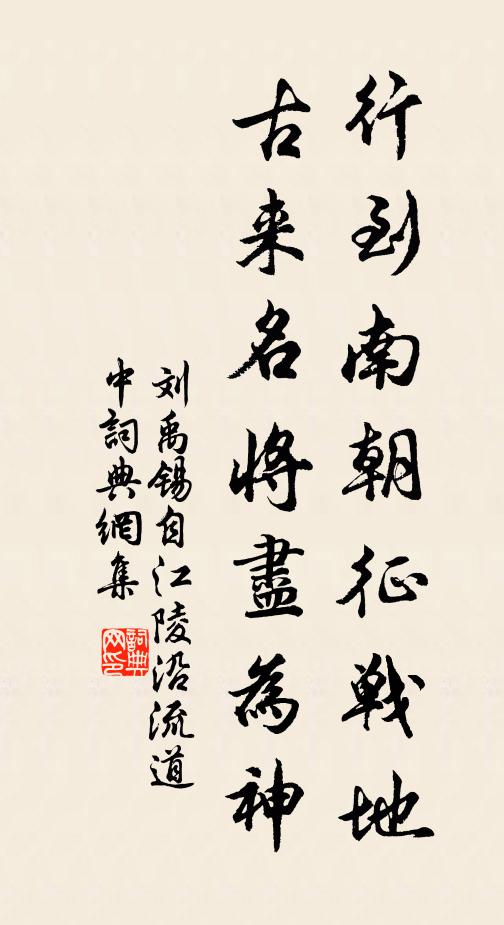 行到南朝征戰地
古来名将盡為神
刘禹锡自江陵沿流道
中詞典網集
詞典
网印